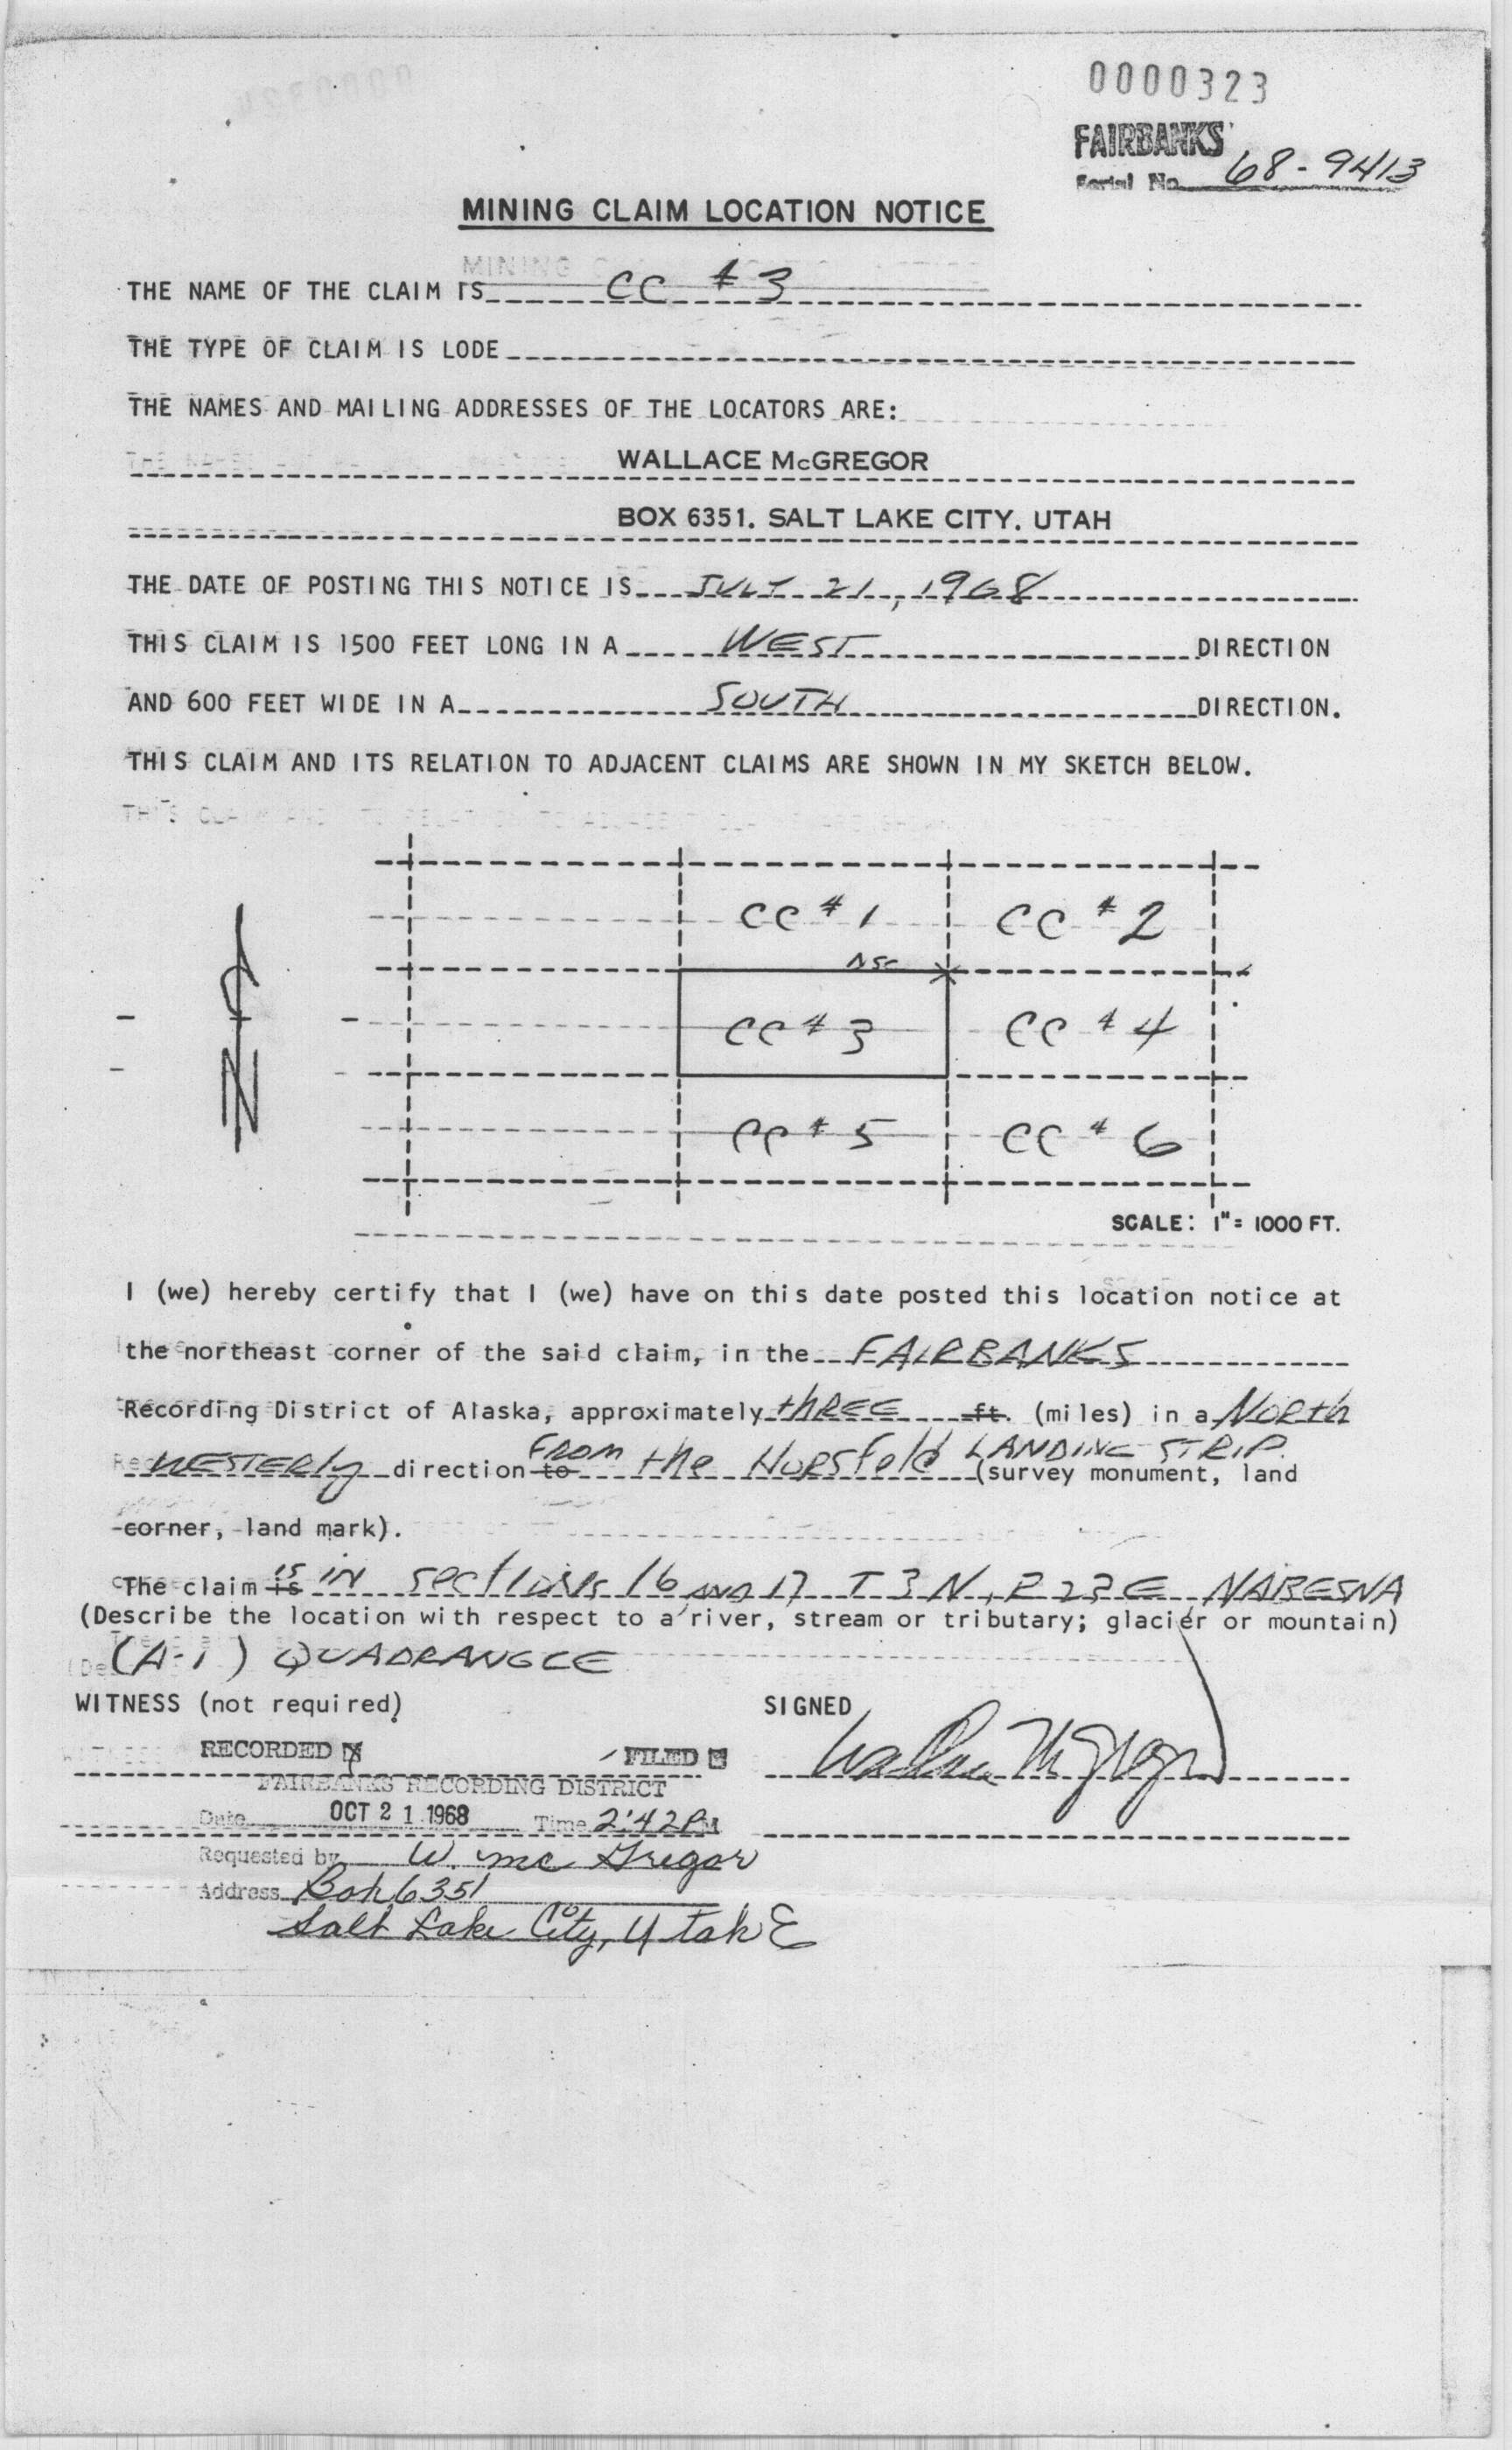 0000323
FAIRBANKS
Serial No. 68-9413
MINING CLAIM LOCATION NOTICE
THE NAME OF THE CLAIM IS CC #3
THE TYPE OF CLAIM IS LODE
THE NAMES AND MAILING ADDRESSES OF THE LOCATORS ARE:
WALLACE McGREGOR
BOX 6351, SALT LAKE CITY, UTAH
THE DATE OF POSTING THIS NOTICE IS JULY 21, 1968
THIS CLAIM IS 1500 FEET LONG IN A WEST DIRECTION
AND 600 FEET WIDE IN A SOUTH DIRECTION.
THIS CLAIM AND ITS RELATION TO ADJACENT CLAIMS ARE SHOWN IN MY SKETCH BELOW.
CC #1 CC #2
N
CC #3 CC #4
CC #5 CC #6
SCALE: 1"= 1000 FT.
I (we) hereby certify that I (we) have on this date posted this location notice at
the northeast corner of the said claim, in the FAIRBANKS
Recording District of Alaska, approximately three ft. (miles) in a North
WESTERly direction to FROM the HORSFELD LANDING STRIP. (survey monument, land
corner, land mark).
The claim is IS IN sections 16 AND 17 T 3 N, R 23 E, NABESNA
(Describe the location with respect to a river, stream or tributary; glacier or mountain)
(A-1) QUADRANGLE
WITNESS (not required) SIGNED
RECORDED FILED Wallace McGregor
FAIRBANKS RECORDING DISTRICT
Date OCT 21 1968 Time 2:42PM
Requested by W. Mc Gregor
Address Box 6351
Salt Lake City, Utah